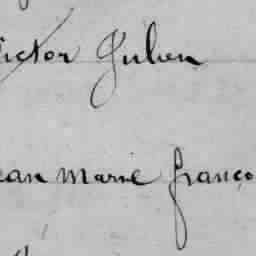 ictor Julien
ean Marie franço